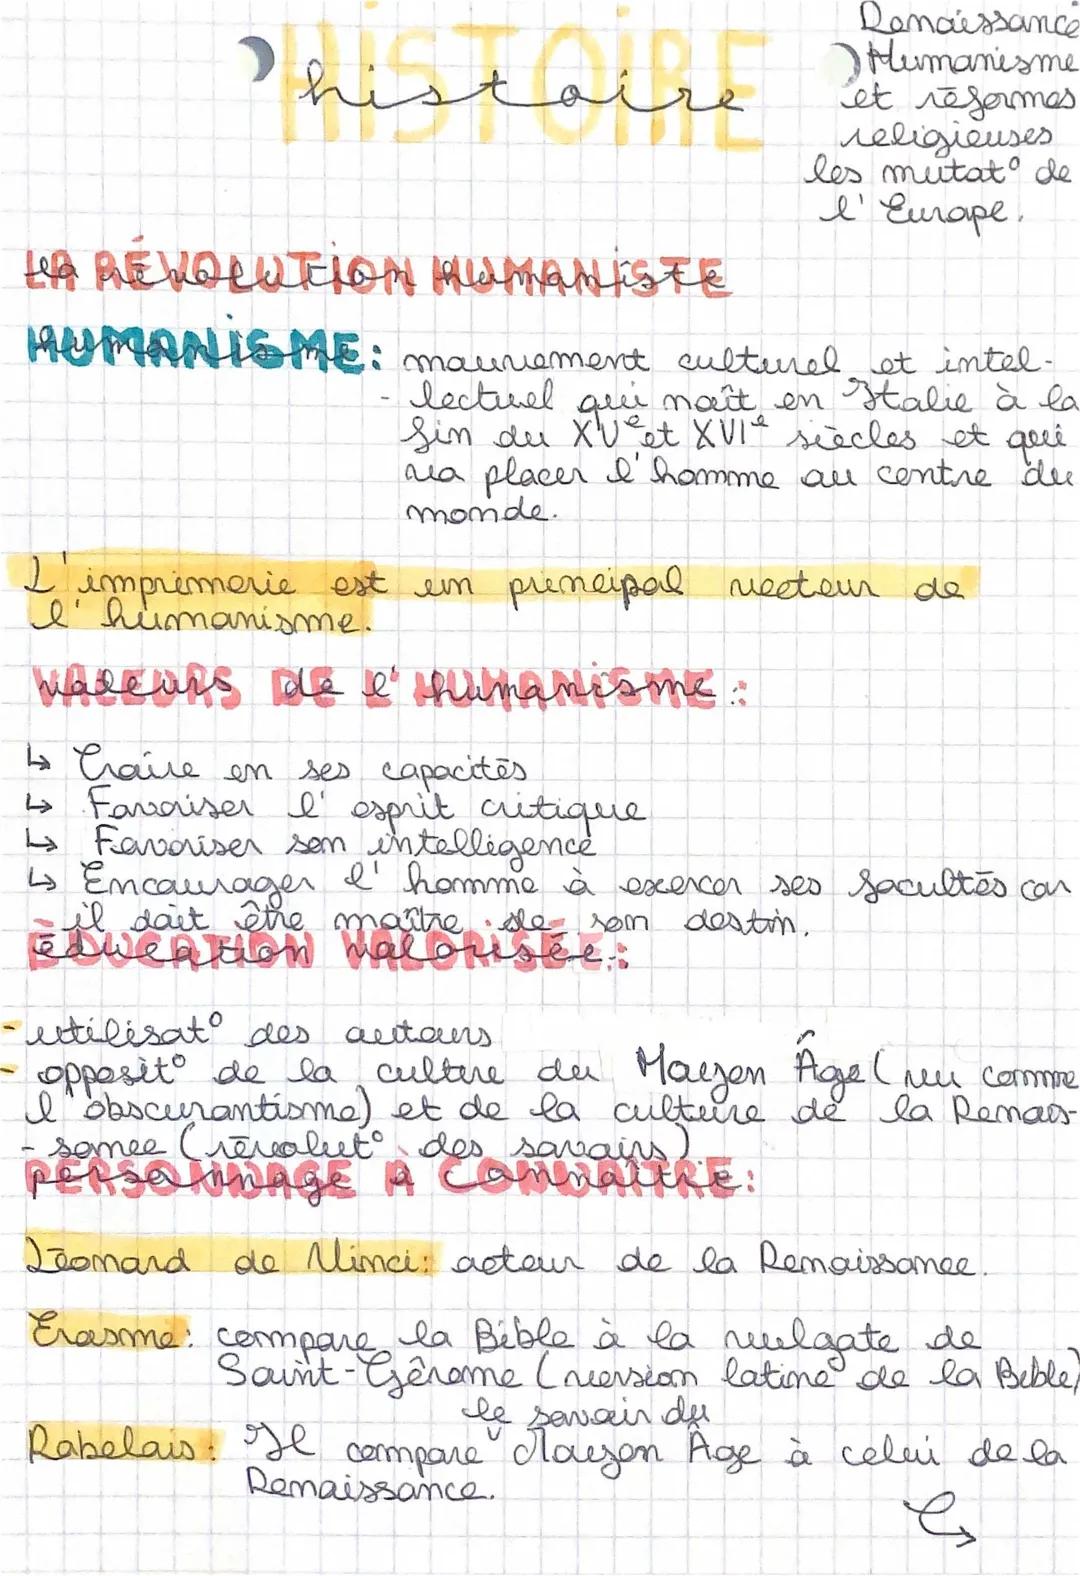 HISTOIRE
histoire
Renaissance
Humanisme
et réformes
religieuses
les mutat° de
l'Europe.
LA RÉVOLUTION HUMANISTE
la révolution humaniste
HUMANISME:
humanisme:
mouvement culturel et intel-
- lectuel qui naît en Italie à la
fin du XVe et XVIe siècles et qui
va placer l'homme au centre du
monde.
L'imprimerie est un principal vecteur de
l'humanisme.
VALEURS DE L'HUMANISME:
valeurs de l'humanisme:
↳ Croire en ses capacités
↳ Favoriser l'esprit critique
↳ Favoriser son intelligence
↳ Encourager l'homme à exercer ses facultés car
il doit être maître de son destin.
ÉDUCATION VALORISÉE:
éducation valorisée:
- utilisat° des auteurs
- opposit° de la culture du Moyen Âge (vu comme
l'obscurantisme) et de la culture de la Renais-
- sance (révolut° des savoirs)
PERSONNAGE À CONNAÎTRE:
personnage à connaître:
Léonard de Vinci: acteur de la Renaissance.
Erasme: compare la Bible à la vulgate de
Saint-Gérome (version latine de la Bible)
le savoir du
Rabelais: Il compare Moyen Âge à celui de la
Renaissance.